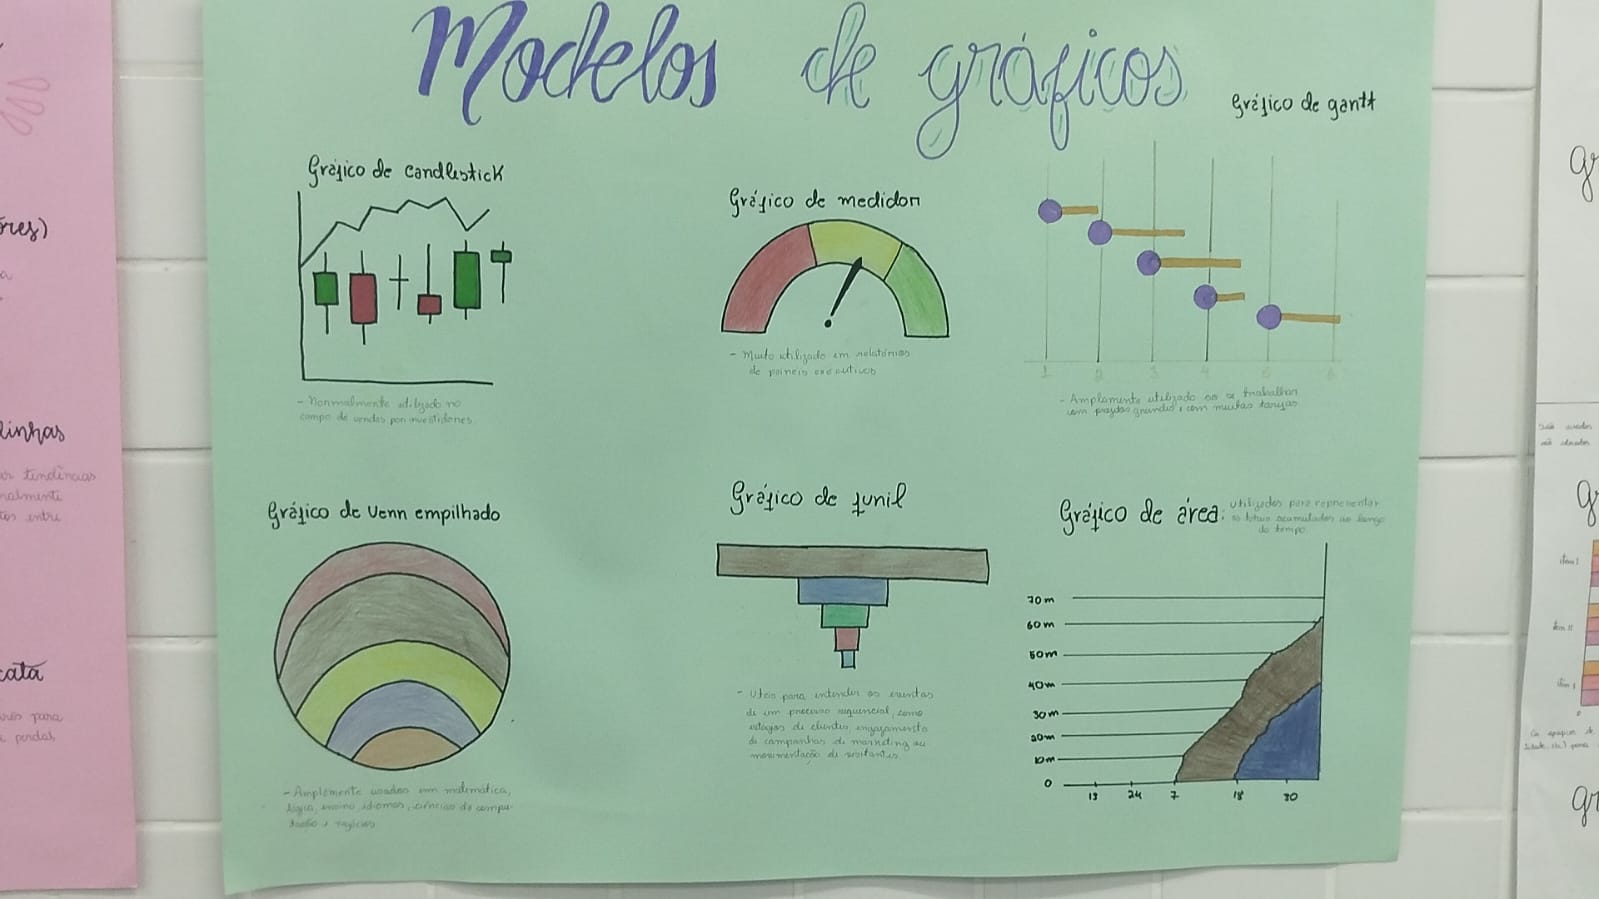 Modelos de gráficos
Gráfico de candlestick
- Normalmente utilizado no
campo de vendas por investidores
Gráfico de medidor
- Muito utilizado em relatórios
de paineis executivos
Gráfico de gantt
1 2 3 4 5 6
- Amplamente utilizado ao trabalhar
com grandes, com muitas tarefas
Gráfico de Venn empilhado
- Amplamente usados em matemática,
lógica, ensino, idiomas, ciências da compu-
tação e negócios
Gráfico de funil
- Uteis para intender os eventos
de um processo sequencial, como
estágios de clientes, engajamento
de campanhas de marketing ou
movimentação de visitantes.
Gráfico de área:
utilizados para representar
os totais acumulados ao longo
do tempo
70m
60m
50m
40m
30m
20m
10m
0
13 24 7 18 30
ores)
linhas
ar tendências
ralmente
tos entre
cata
para
perdas,
gr
São usados
item I
item II
gr